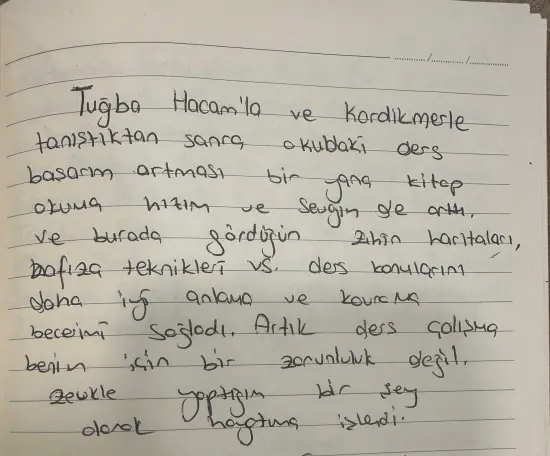 ...../...../.........
Tuğba Hacam'la ve Kordikmerle
tanıştıktan sanra okuldaki ders
basarım artması bir yana kitap
okuma hızım ve sevgim de arttı.
ve burada gördüğün zihin haritaları,
hafıza teknikleri vs. ders konularını
daha iyi anlama ve kavrama
becerimi sağladı. Artık ders çalışma
benim için bir zorunluluk değil.
zevkle yaptığım bir şey
olarak hayatıma işlendi.